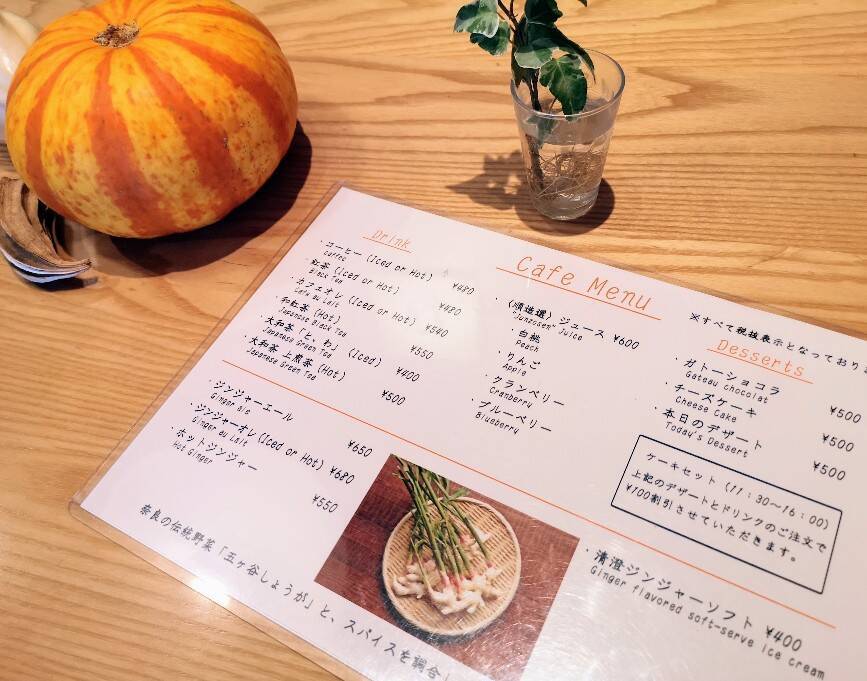 Cafe Menu
※すべて税抜表示となっておりま
Drink
・コーヒー (Iced or Hot) ¥480
Coffee
・紅茶 (Iced or Hot) ¥480
Black Tea
・カフェオレ (Iced or Hot) ¥540
Cafe au Lait
・和紅茶 (Hot) ¥550
Japanese Black Tea
・大和茶「と、わ」 (Iced) ¥400
Japanese Green Tea
・大和茶 上煎茶 (Hot) ¥500
Japanese Green Tea
・〈順造選〉ジュース ¥600
"Junzosen" Juice
・白桃
Peach
・りんご
Apple
・クランベリー
Cranberry
・ブルーベリー
Blueberry
Desserts
・ガトーショコラ ¥500
Gateau chocolat
・チーズケーキ ¥500
Cheese Cake
・本日のデザート ¥500
Today's Dessert
ケーキセット (11：30～16：00)
上記のデザートとドリンクのご注文で
¥100割引させていただきます。
・ジンジャーエール ¥650
Ginger ale
・ジンジャーオレ (Iced or Hot) ¥680
Ginger au Lait
・ホットジンジャー ¥550
Hot Ginger
・清澄ジンジャーソフト ¥400
Ginger flavored soft-serve ice cream
奈良の伝統野菜「五ヶ谷しょうが」と、スパイスを調合し